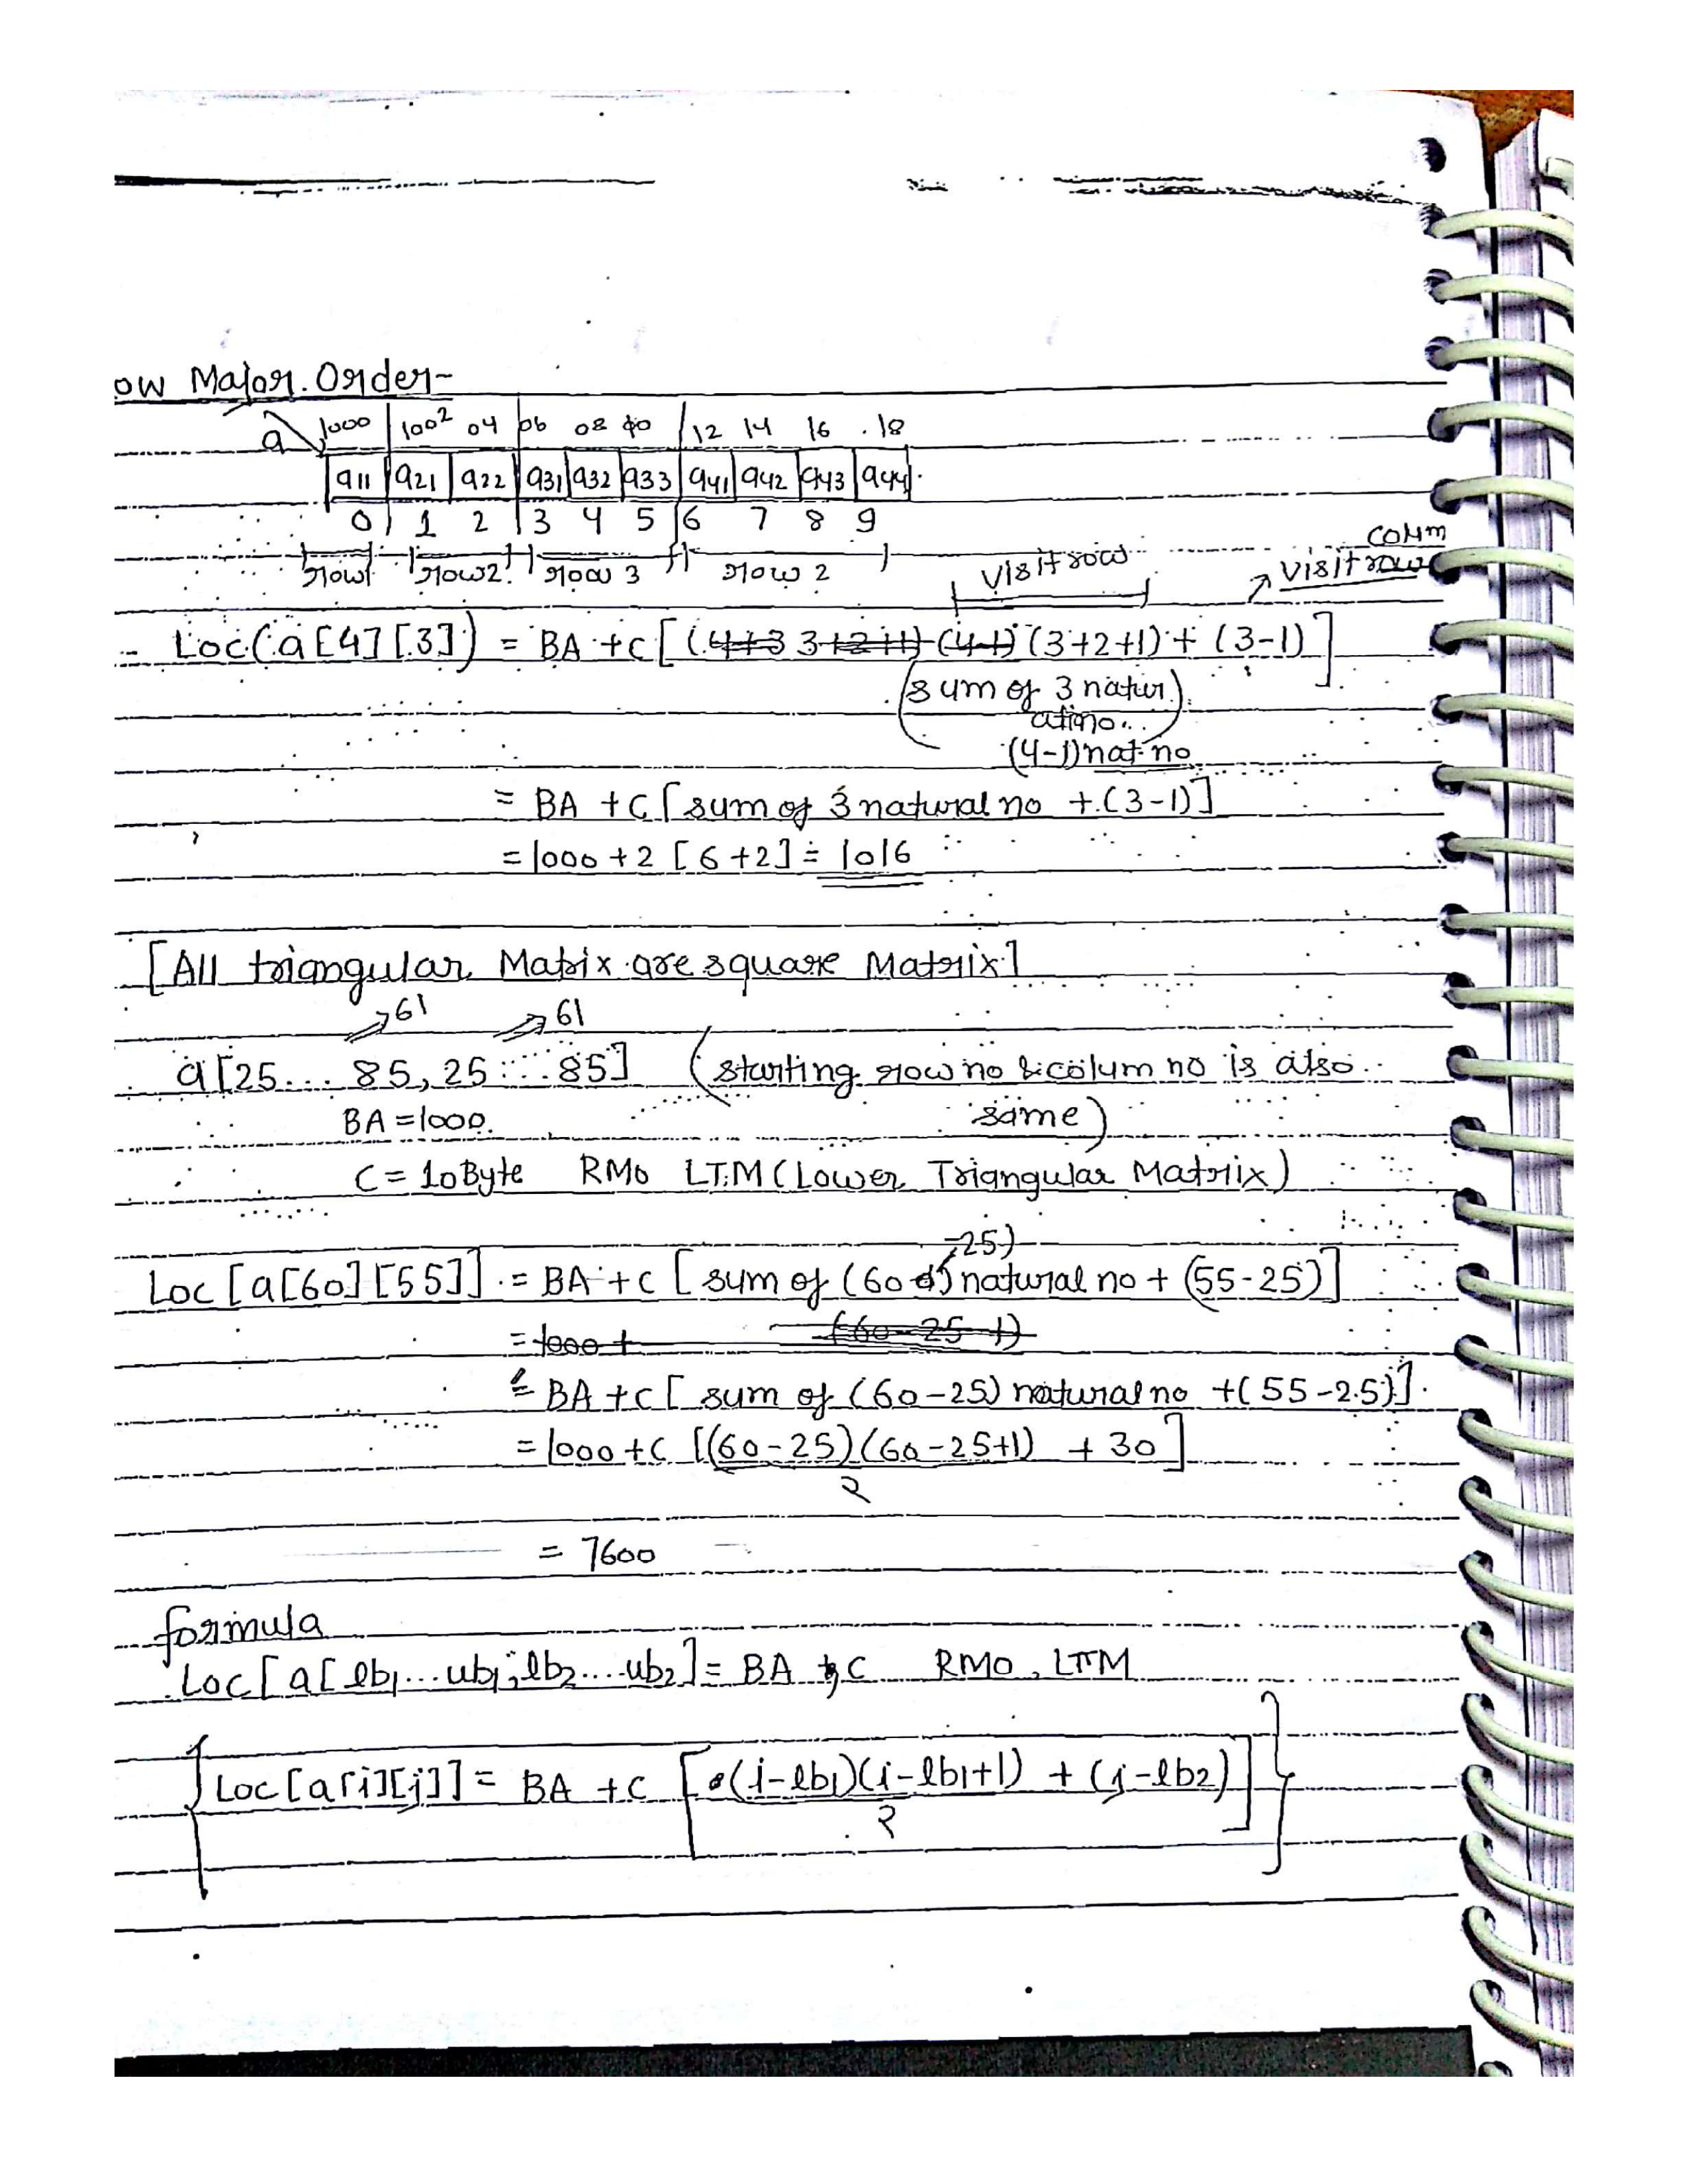 ow Major Order-
a 1000 1002 04 06 08 10 12 14 16 18
a11 a21 a22 a31 a32 a33 a41 a42 a43 a44
0 1 2 3 4 5 6 7 8 9
row1 row2 row 3 row 2 visit row colm visit row
Loc(a[4][3]) = BA + C [(4+3 3+2+1) (4-1) (3+2+1) + (3-1)]
(sum of 3 natur
no..
(4-1) nat no
= BA + C [sum of 3 natural no + (3-1)]
= 1000 + 2 [6+2] = 1016
[All triangular Matrix are square Matrix]
61 61
a[25... 85, 25...85] (starting row no & colum no is also
BA = 1000. same)
C = 10Byte RMO LTM (Lower Triangular Matrix)
-25)
Loc [a[60][55]] = BA + C [sum of (60 natural no + (55-25)]
= 1000 + (60-25-1)
= BA + C [sum of (60-25) natural no + (55-25)]
= 1000 + C [(60-25)(60-25+1) + 30]
2
= 7600
formula
Loc [a[lb1...ub1, lb2....ub2] = BA , C RMO, LTM
Loc [a[i][j]] = BA + C [(i-lb1)(i-lb1+1) + (j-lb2)]
2